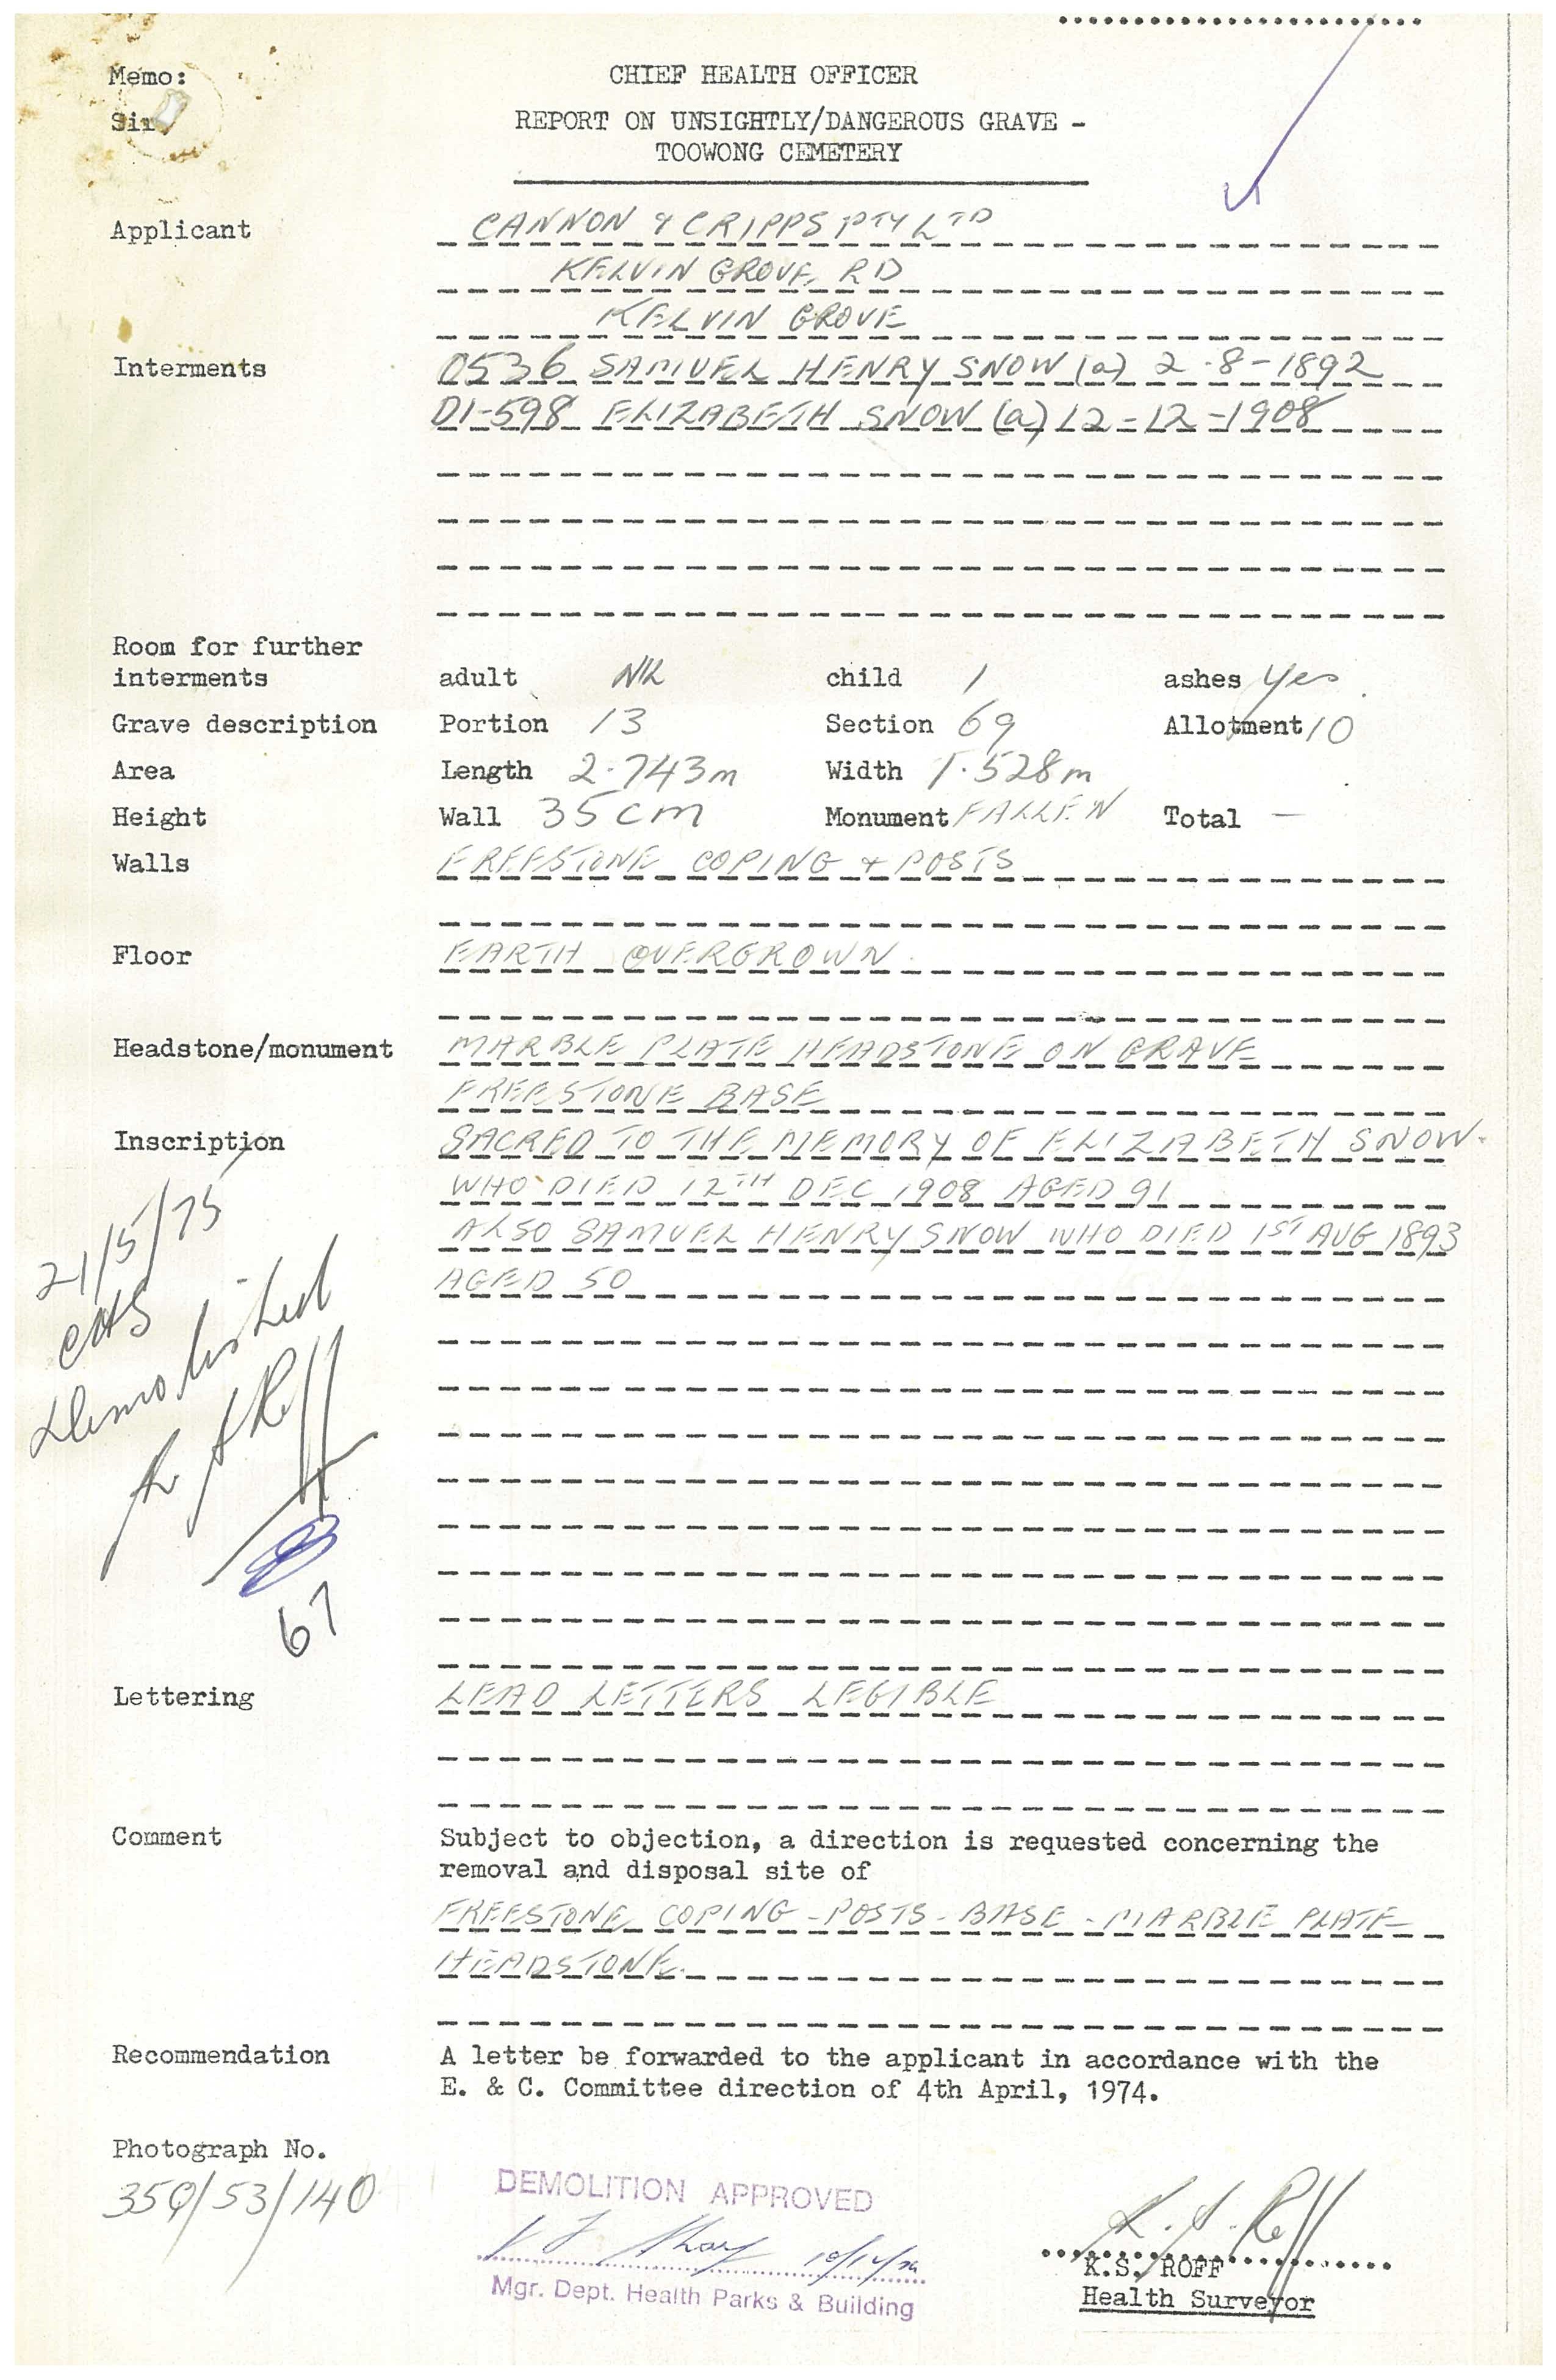 Memo:
CHIEF HEALTH OFFICER
Sir,
REPORT ON UNSIGHTLY/DANGEROUS GRAVE -
TOOWONG CEMETERY
Applicant CANNON & CRIPPS PTY LTD
KELVIN GROVE RD
KELVIN GROVE
Interments 0536 SAMUEL HENRY SNOW (a) 2-8-1892
D1-598 ELIZABETH SNOW (a) 12-12-1908
Room for further
interments adult NIL child 1 ashes yes
Grave description Portion 13 Section 69 Allotment 10
Area Length 2.743m Width 1.528m
Height Wall 35cm Monument FALLEN Total —
Walls FREESTONE COPING + POSTS
Floor EARTH OVERGROWN.
Headstone/monument MARBLE PLATE HEADSTONE ON GRAVE
FREESTONE BASE
Inscription SACRED TO THE MEMORY OF ELIZABETH SNOW.
WHO DIED 12TH DEC 1908 AGED 91
ALSO SAMUEL HENRY SNOW WHO DIED 1ST AUG 1893
AGED 50
21/5/75
CHS
Demolished
67
Lettering LEAD LETTERS LEGIBLE
Comment Subject to objection, a direction is requested concerning the
removal and disposal site of
FREESTONE COPING - POSTS - BASE - MARBLE PLATE
HEADSTONE.
Recommendation A letter be forwarded to the applicant in accordance with the
E. & C. Committee direction of 4th April, 1974.
Photograph No.
350/53/140
DEMOLITION APPROVED
Mgr. Dept. Health Parks & Building
K.S. Roff
K.S. ROFF
Health Surveyor